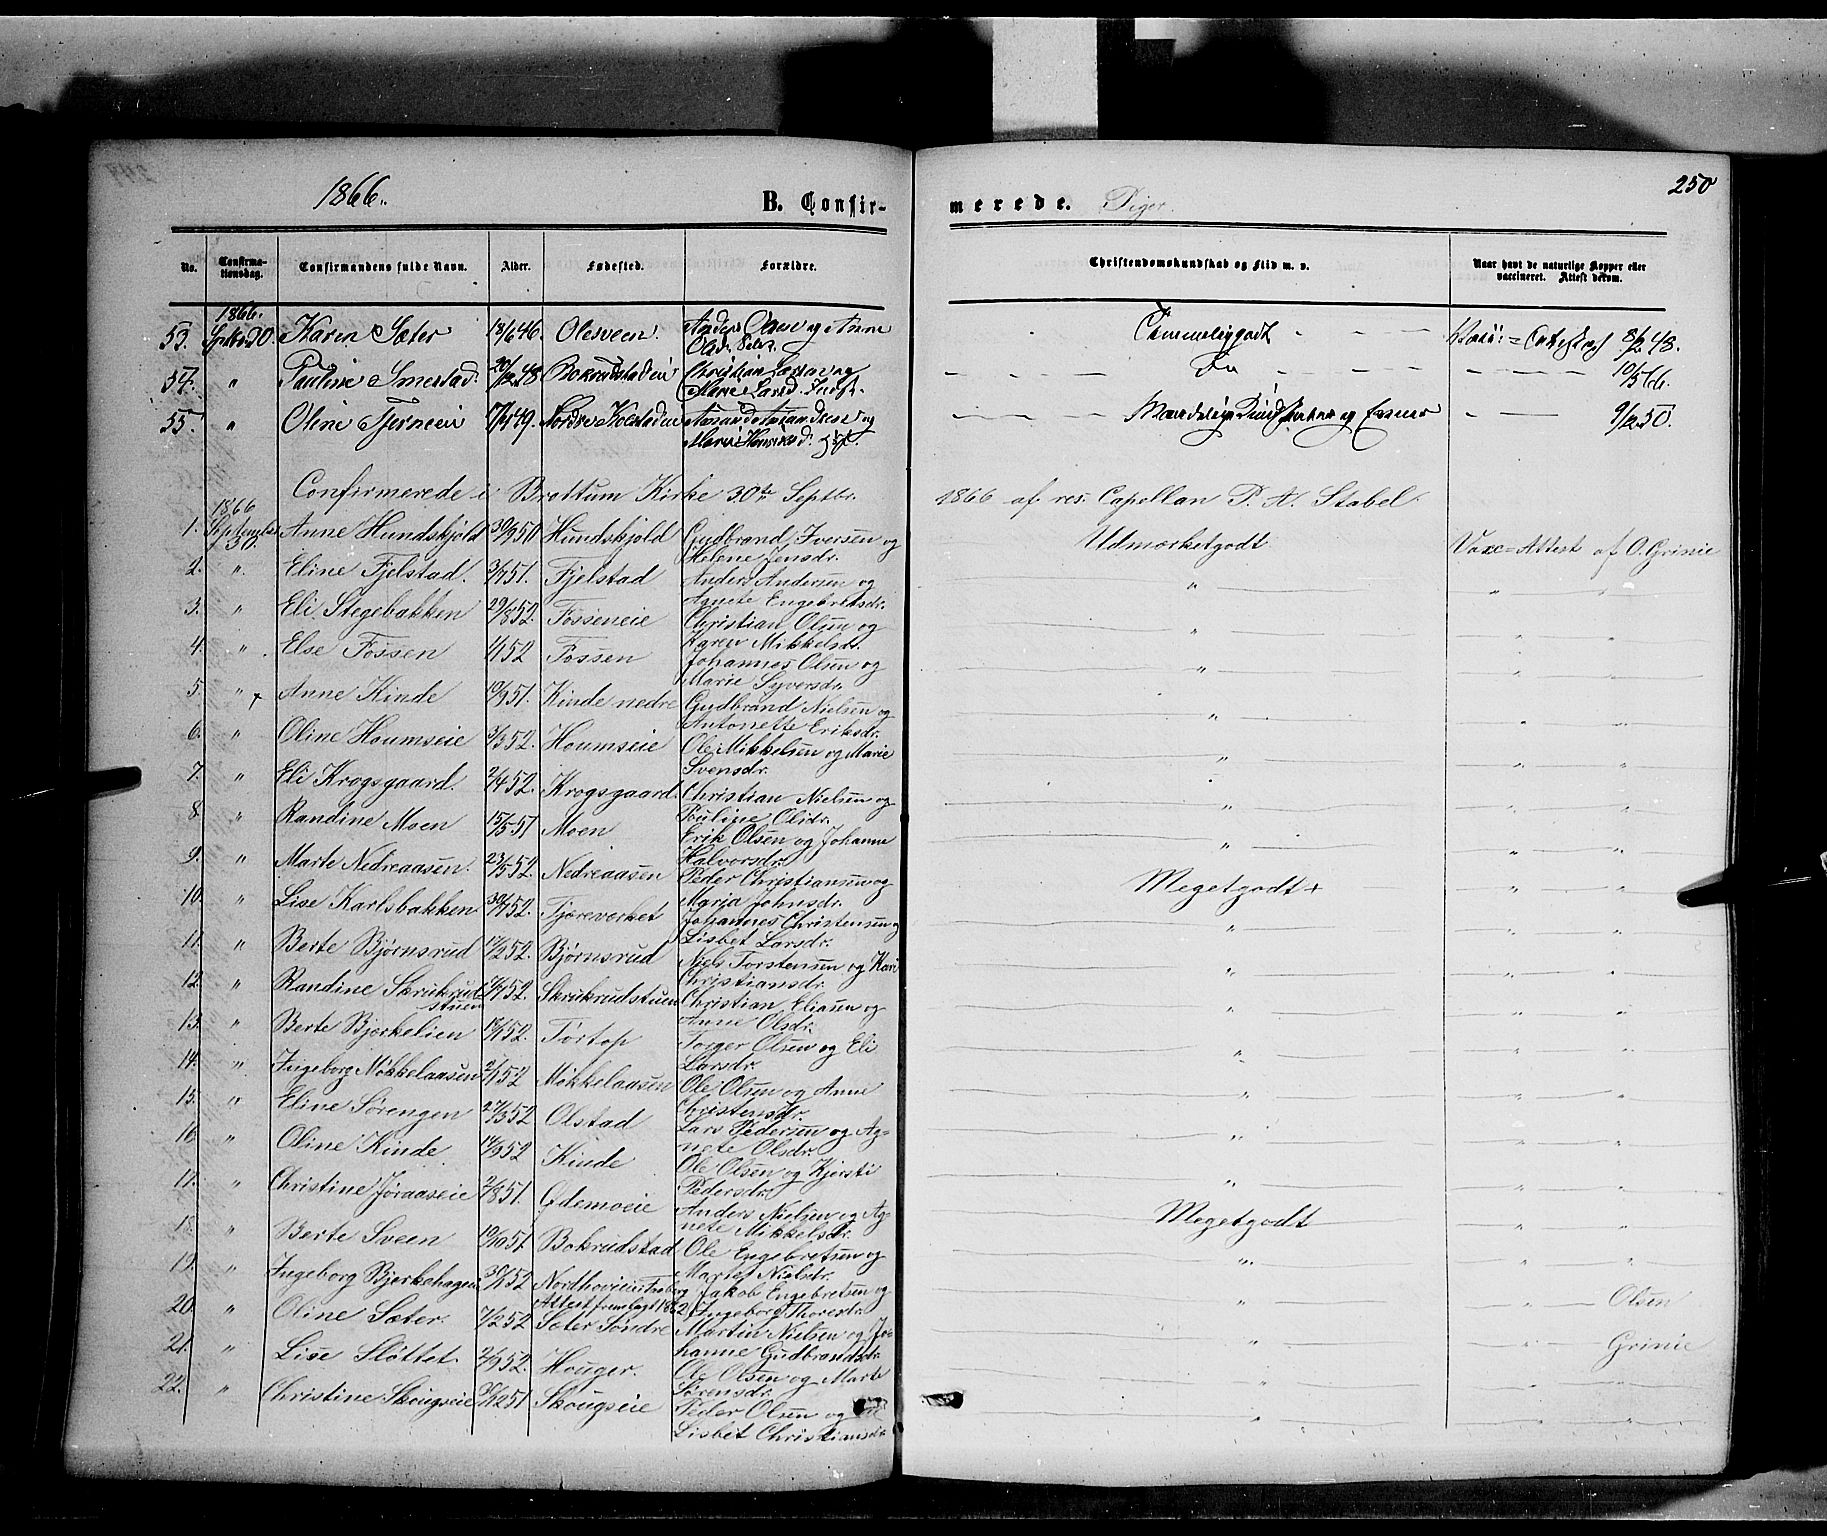 1866.
B. Confir-
merede. Piger.
250
No. Confirma-tionsdag. Confirmandens fulde Navn. Alder. Fødested. Forældre. Christendomskundskab og Flid m. v. Naar havt de naturlige Kopper eller vaccineret. Attest derom.
1866.
53. Septbr 30. Karen Sæter 18/6 46 Olesveen. Anders Olsen og Anne Temmeliggodt 8/2 48.
54. " Pauline Smestad. Bokrudstadeie Christian Larsen og Marie Larsd. Do 10/5 66.
55. " Oline Tjerneeie Nordre Kolstadeie Amund Amundsen og Marie 9/6 50.
Confirmerede i Brøttum Kirke 30te Septbr. 1866 af res. Capellan P. A. Stabel.
1866
1. September 30. Anne Hundskjold 30/9 50 Hundskjold Gudbrand Iversen og Helene Jensdr. Udmærketgodt Vacc=Attest af O. Grinie
2. " Eline Fjelstad. 3/7 51. Fjelstad Anders Andersen og Agnete Engebretsdr. " " "
3. " Eli Stegebakken 29/8 52. Fossеneie Christian Olsen og Karen Mikkelsdr. " " "
4. " Else Fossen 4/1 52 Fossen Johannes Olsen og Marie Syversdr. " " "
5. " + Anne Kinde 19/9 51. Kinde nedre Gudbrand Nielsen og Antonette Eriksdr. " " "
6. " Oline Houmseie 3/3 52. Houmseie Ole Mikkelsen og Marie Svensdr. " " "
7. " Eli Krogsgaard. 2/4 52. Krogsgaard. Christian Nielsen og Pauline Olidr. " " "
8. " Randine Moen 15/5 51 Moen Erik Olsen og Johanne Halvorsdr. " " "
9. " Marte Nedreaasen. 23/5 52. Nedreaasen Peder Christiansen og Maria Johnsdr. Megetgodt + " "
10. " Lise Karlsbakken 30/7 52. Tjæreverket Johannes Christensen og Lisbet Larsdr. " " "
11. " Berte Bjørnsrud 17/2 52. Bjørnsrud Niels Torstensen og Kari Christiansdr. " " "
12. " Randine Skrukrud-stuen Skrukrudstuen Christian Eliasen og Anne Olsdr. " " "
13. " Berte Bjørkelien Tørtop Torger Olsen og Eli Larsdr. " " "
14. " Ingeborg Mökkelaasen Mökkelaasen Ole Olsen og Anne Christensdr. " " "
15. " Eline Sørengen 27/3 52 Olstad Lars Pedersen og Ag-nete Olsdr. " " "
16. " Oline Kinde 14/3 52 Kinde Ole Olsen og Kjersti Pedersdr. " " "
17. " Christine Jøraaseie 2/8 51. Ødemoeie Anders Nielsen og Ag-nete Mikkelsdr. Megetgodt " "
18. " Berte Sveen 19/10 51 Bokrudstad Ole Engebretsen og Marie Nielsdr. " " "
19. " Ingeborg Bjerkehagen Nordhovieie Attest fremlagt 1862 Jakob Engebretsen og Ingeborg Thoresdr. " " Olsen
20. " Oline Sæter. 7/2 52 Sæter Søndre Martin Nielsen og Jo-hanne Gudbrandsdr. " " Grinie
21. " Lise Slöttet 2/9 52. Houger. Ole Olsen og Marte Sørensdr. " " "
22. " Christine Skougseie 31/12 51 Skougseie Peder Olsen og Lisbet Christiansdr. " " "